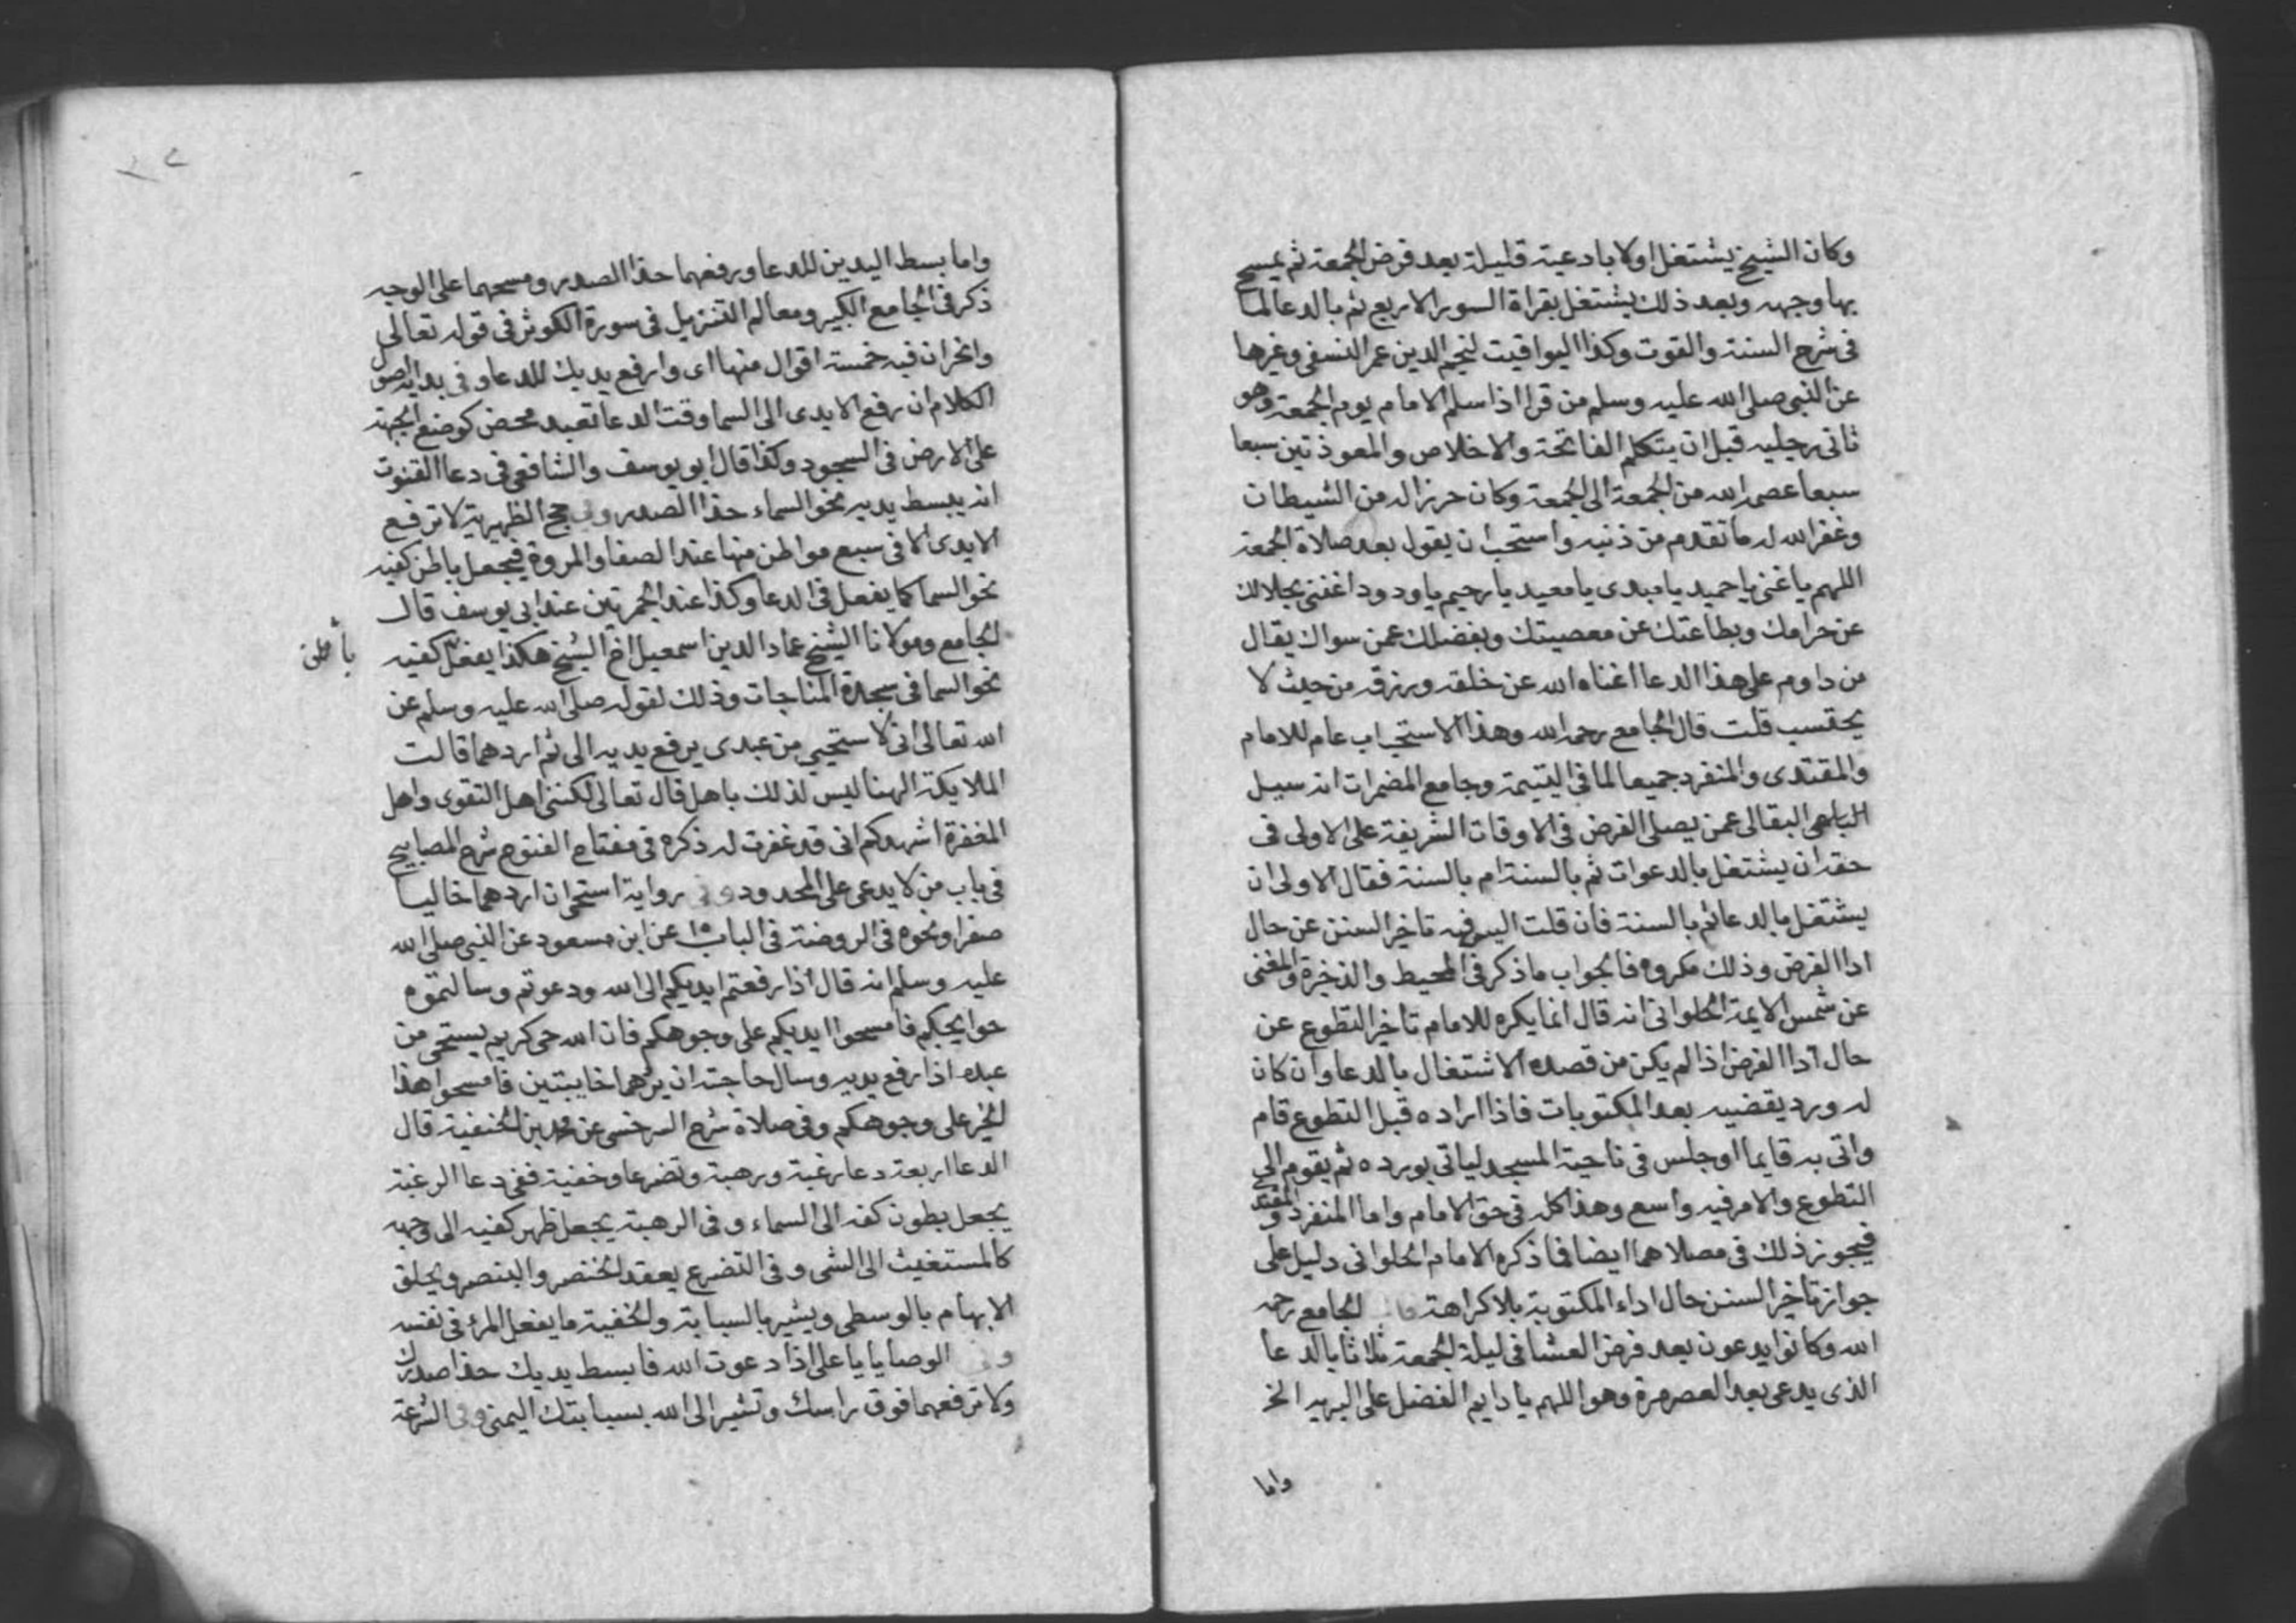 وكان الشيخ يشتغل اولا بادعية قليلة بعد فرض الجمعة ثم يمسح
بها وجهه وبعد ذلك يشتغل بقراة السور الاربع ثم بالدعا لما
فى شرح السنة والقوت وكذا اليواقيت لنجم الدين عمر النسفى وغيرها
عن النبى صلى الله عليه وسلم من قرا اذا سلم الامام يوم الجمعة وهو
ثانى رجليه قبل ان يتكلم الفاتحة والاخلاص والمعوذتين سبعا
سبعا عصمه الله من الجمعة الى الجمعة وكان حرزا له من الشيطان
وغفر الله له ما تقدم من ذنبه واستحب ان يقول بعد صلاة الجمعة
اللهم يا غنى يا حميد يا مبدى يا معيد يا رحيم يا ودود اغننى بحلالك
عن حرامك وبطاعتك عن معصيتك وبفضلك عمن سواك يقال
من داوم على هذا الدعا اغناه الله عن خلقه ورزقه من حيث لا
يحتسب قلت قال الجامع رحمه الله وهذا الاستحباب عام للامام
والمقتدى والمنفرد جميعا لما فى اليتيمة وجامع المضمرات انه سيل
البقالى عمن يصلى الفرض فى الاوقات الشريفة على الاولى فى
حقه ان يشتغل بالدعوات ثم بالسنة ام بالسنة فقال الاولى ان
يشتغل بالدعا ثم بالسنة فان قلت اليس فيه تاخير السنن عن حال
ادا الفرض وذلك مكروه فالجواب ما ذكر فى المحيط والذخيرة والمغنى
عن شمس الايمة الحلوانى انه قال انما يكره للامام تاخير التطوع عن
حال ادا الفرض اذا لم يكن من قصده الاشتغال بالدعا وان كان
له ورد يقضيه بعد المكتوبات فاذا اراده قبل التطوع قام
واتى به قايما او جلس فى ناحية المسجد لياتى بورده ثم يقوم الى
التطوع والامر فيه واسع وهذا كله فى حق الامام واما المنفرد والمقتد
فيجوز ذلك فى مصلاهما ايضا فما ذكره الامام الحلوانى دليل على
جواز تاخير السنن حال اداء المكتوبة بلا كراهة قال الجامع رحمه
الله وكانوا يدعون بعد فرض العشا فى ليلة الجمعة ثلاثا بالدعا
الذى يدعى بعد العصر مرة وهو اللهم يا دايم الفضل على البريه الخ
واما
واما بسط اليدين للدعا ورفعهما حذا الصدر ومسحهما على الوجه
ذكر فى الجامع الكبير ومعالم التنزيل فى سورة الكوثر فى قوله تعالى
وانحر ان فيه خمسة اقوال منها اى وارفع يديك للدعا وفى بداية اصول
الكلام ان رفع الايدى الى السما وقت الدعا تعبد محض كوضع الجبهة
على الارض فى السجود وكذا قال ابو يوسف والشافعى فى دعا القنوت
انه يبسط يديه نحو السماء حذا الصدر وفى حج الظهيرية لا ترفع
الايدى الا فى سبع مواطن منها عند الصفا والمروة فيجعل باطن كفيه
نحو السما كما يفعل فى الدعا وكذا عند الجمرتين عند ابى يوسف قال
الجامع ومولانا الشيخ عماد الدين اسمعيل اخ الشيخ هكذا يفعل كفيه
باطن
نحو السما فى سجدة المناجات وذلك لقوله صلى الله عليه وسلم عن
الله تعالى انى لاستحيي من عبدى يرفع يديه الى ثم اردهما قالت
الملايكة الهنا ليس لذلك باهل قال تعالى لكننى اهل التقوى واهل
المغفرة اشهدكم انى قد غفرت له ذكره فى مفتاح الفتوح شرح المصابيح
فى باب من لا يدعى على المحدود وفى رواية استحى ان اردهما خاليا
صفرا ونحوه فى الروضة فى الباب ١٥ عن ابن مسعود عن النبى صلى الله
عليه وسلم انه قال اذا رفعتم ايديكم الى الله ودعوتم وسالتموه
حوايجكم فامسحوا ايديكم على وجوهكم فان الله حى كريم يستحى من
عبده اذا رفع يديه وسال حاجته ان يردهما خايبتين فامسحوا هذا
الخير على وجوهكم وفى صلاة شرح السرخسى عن محمد بن الحنفية قال
الدعا اربعة دعا رغبة ورهبة وتضرعا وخفية ففى دعا الرغبة
يجعل بطون كفه الى السماء وفى الرهبة يجعل ظهر كفيه الى وجهه
كالمستغيث الى الشى وفى التضرع يعقد الخنصر والبنصر ويحلق
الابهام بالوسطى ويشير بالسبابة والخفية ما يفعل المرء فى نفسه
وفى الوصايا يا على اذا دعوت الله فابسط يديك حذا صدرك
ولا ترفعهما فوق راسك وتشير الى الله بسبابتك اليمنى وفى الشرعة